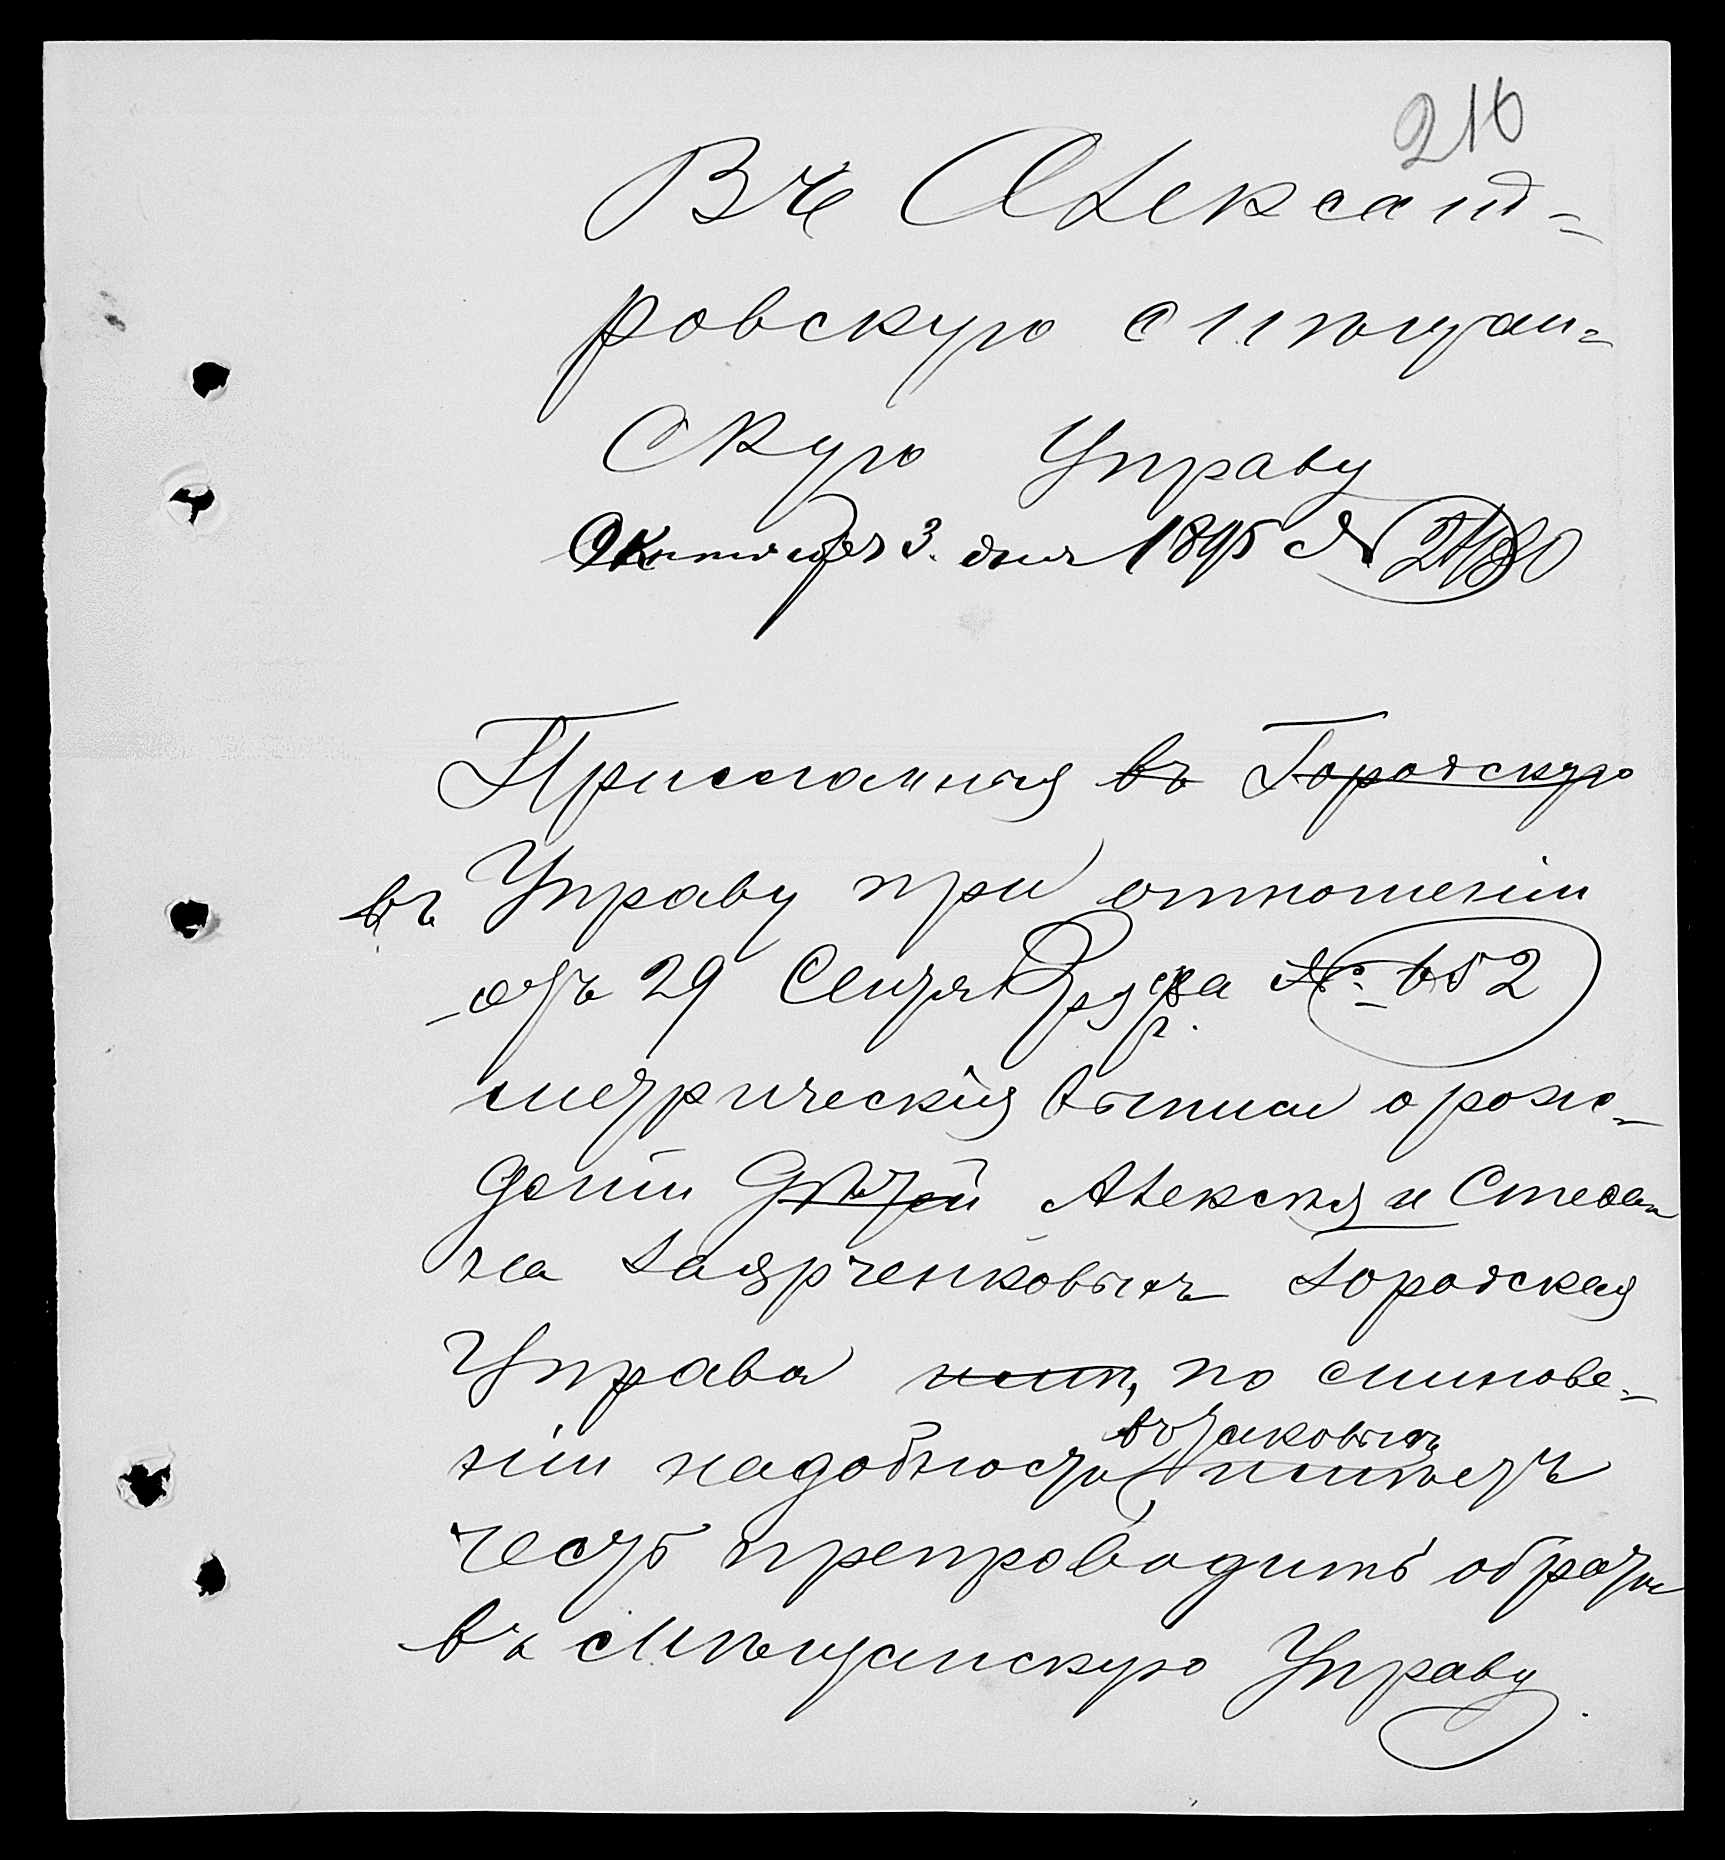 216
Въ Александ=
ровскую Мѣщан=
скую Управу
Октября 3 дня 1895 № 2480
Присланныя въ Городскую
въ Управу при отношеніи
отъ 29 Сентября с/г. за № 652
метрическія выписи о рож-
деніи дѣтей Алексѣя и Степа
на Гаярченковыхъ Городская
Управа имѣ, по минове-
ніи надобности
въ таковыхъ
имѣетъ
честь препроводить обратно
въ Мѣщанскую Управу.